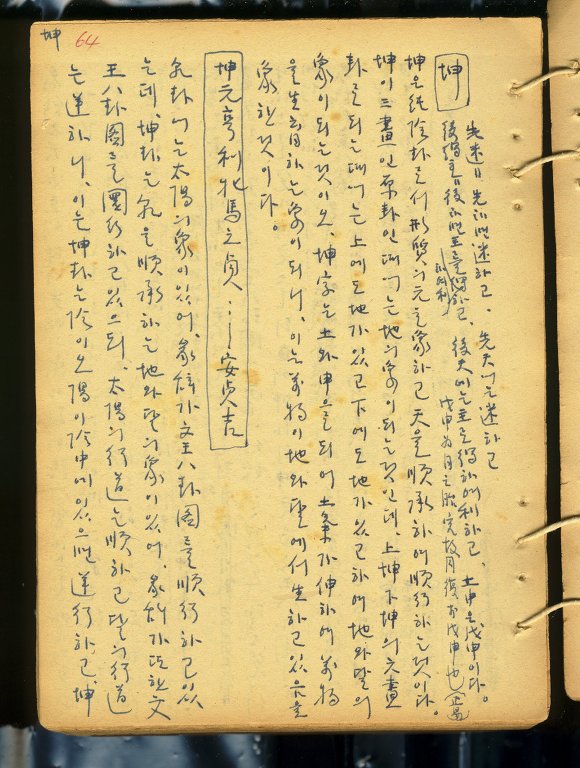 坤 64
坤
先迷ㅂ 先하면 迷하고、 先天에는 迷하고
後得主ㅂ 後하면 主를 得하고、 後天에는 主를 得하여 利하고、 土申은 戊申이다。
하여利
戊申 月之 故月復 於戊申也
坤은 純陰卦로서 形質의 元을 象하고 天을 順承하여 順行하는 것이다。
坤이 三畫인 原卦인 때에는 地의 象이 되는 것인데、上坤下坤의 六畫
卦로 되는 때에는 上에도 地가 있고 下에도 地가 있고 하여 地와 달의
象이 되는 것이오、坤字는 土와 申으로 되어、土氣가 伸하여 萬物
을 生育하는 象이 되니、이는 萬物이 地와 달에서 生하고 있음을
象한 것이다。
坤元亨利牝馬之貞 安貞吉
乾卦에는 太陽의 象이 있어、象辭가 文王八卦圖를 順行하고 있
는데、坤卦는 乾을 順承하는 地와 달의 象이 있어、象辭가 또한 文
王八卦圖를 하고 있으되、太陽의 行道는 順하고 달의 行道
는 逆하니、이는 坤卦는 陰이오 陽이 陰中에 있으매 逆行하고、坤